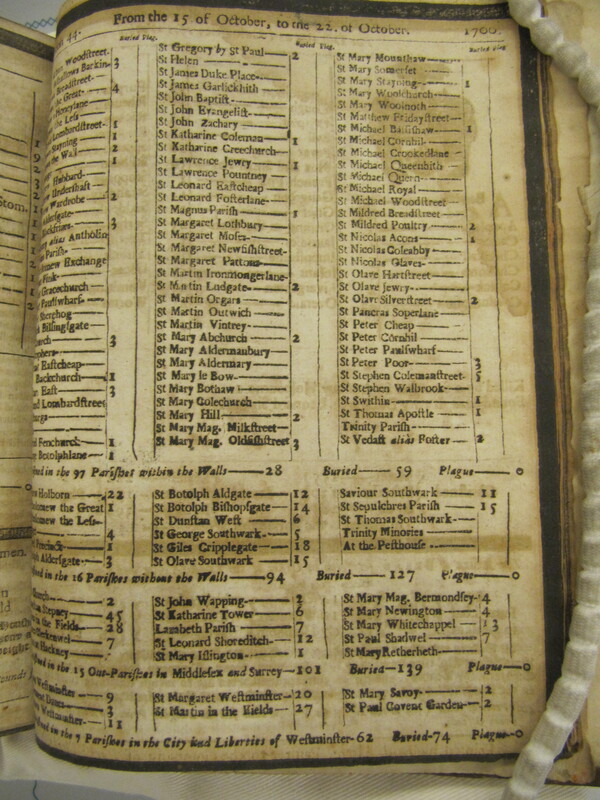 44. From the 15 of October, to the 22. of October. 1700.
Buried Plag. Buried Plag. Buried Plag
Woodstreet.
Barkin- 3
Breadstreet-
Great- 4
Honeylane
Less
Lombardstreet- 1
Stayning 2
the Wall 1
Hubbard-
Undershaft
Wardrobe 2
Aldersgate-
Blackfriers- 3
alias Antholin
Parish-
Exchange
Fink
Gracechurch
Paulswharf-
Sherehog
Billingsgate
church 3
Eastcheap
Backchurch 1
East 3
Lombardstreet
Fenchurch 1
Botolphlane 1
St Gregory by St Paul 2
St Helen
St James Duke Place
St James Garlickhith
St John Baptist
St John Evangelist
St John Zachary
St Katharine Coleman 1
St Katharine Creechurch
St Lawrence Jewry 1
St Lawrence Pountney
St Leonard Eastcheap
St Leonard Fosterlane
St Magnus Parish 1
St Margaret Lothbury
St Margaret Moses
St Margaret Newfishstreet-
St Margaret Pattons
St Martin Ironmongerlane-
St Martin Ludgate 2
St Martin Orgars
St Martin Outwich
St Martin Vintrey
St Mary Abchurch 2
St Mary Aldermanbury
St Mary Aldermary
St Mary le Bow
St Mary Bothaw
St Mary Colechurch
St Mary Hill 2
St Mary Mag. Milkstreet
St Mary Mag. Oldfishstreet 3
St Mary Mounthaw
St Mary Somerset
St Mary Stayning 1
St Mary Woolchurch
St Mary Woolnoth
St Matthew Fridaystreet
St Michael Bassishaw 1
St Michael Cornhil
St Michael Crookedlane
St Michael Queenhith
St Michael Quern
St Michael Royal
St Michael Woodstreet
St Mildred Breadstreet
St Mildred Poultry 2
St Nicolas Acons 1
St Nicolas Coleabby
St Nicolas Olaves
St Olave Hartstreet
St Olave Jewry
St Olave Silverstreet 2
St Pancras Soperlane
St Peter Cheap
St Peter Cornhil
St Peter Paulswharf
St Peter Poor 3
St Stephen Colemanstreet- 5
St Stephen Walbrook
St Swithin 1
St Thomas Apostle 1
Trinity Parish
St Vedast alias Foster 2
in the 97 Parishes within the Walls 28 Buried 59 Plague 0
Holborn 22
the Great 1
the Less-
4
Precinct 1
Aldersgate- 3
St Botolph Aldgate 12
St Botolph Bishopsgate 14
St Dunstan West 6
St George Southwark 5
St Giles Cripplegate 18
St Olave Southwark 15
Saviour Southwark 11
St Sepulchres Parish 15
St Thomas Southwark
Trinity Minories
At the Pesthouse
in the 16 Parishes without the Walls 94 Buried 127 Plague 0
church 2
Stepney 45
in the Fields 28
Clerkenwel 7
Hackney
St John Wapping 2
St Katharine Tower 6
Lambeth Parish 7
St Leonard Shoreditch 12
St Mary Islington 1
St Mary Mag. Bermondsey- 4
St Mary Newington 4
St Mary Whitechappel 13
St Paul Shadwel 7
St Mary Retherheth
in the 15 Out-Parishes in Middlesex and Surrey 101 Buried 139 Plague 0
Westminster 9
Danes 3
Westminster 11
St Margaret Westminster 20
St Martin in the Fields 27
St Mary Savoy 2
St Paul Covent Garden 2
in the 7 Parishes in the City and Liberties of Westminster- 62 Buried- 74 Plague- 0